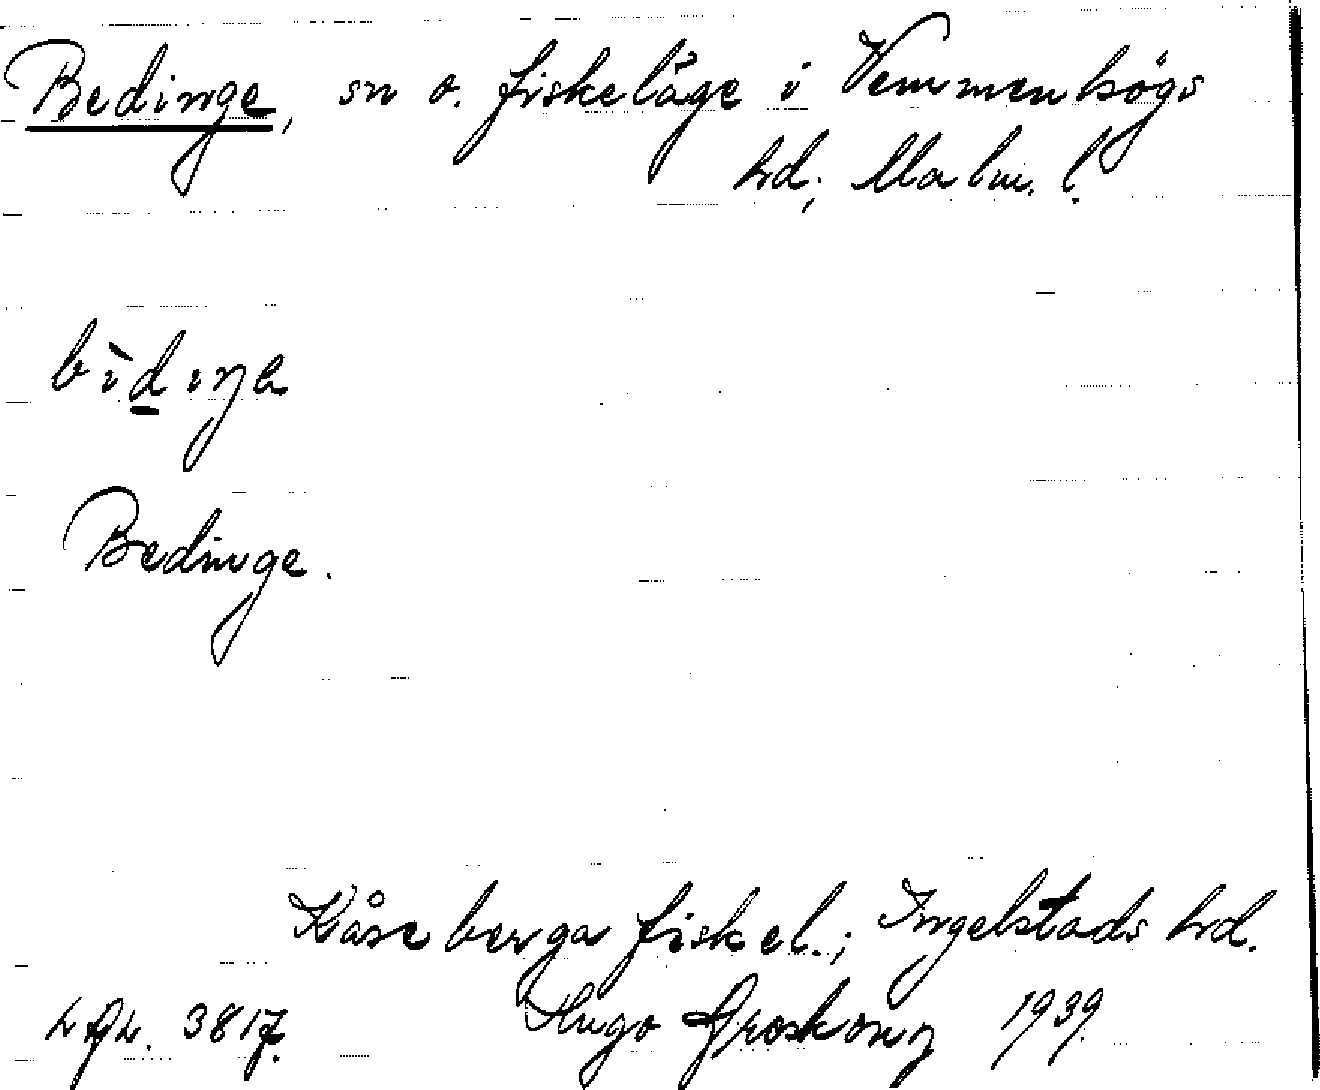 Bedinge, sn o. fiskeläge i Vemmenhögs
hd; Malm. l.
bìdiŋe
Bedinge.
Kåseberga fiskel.; Ingelstads hd.
3817. Hugo 1939.